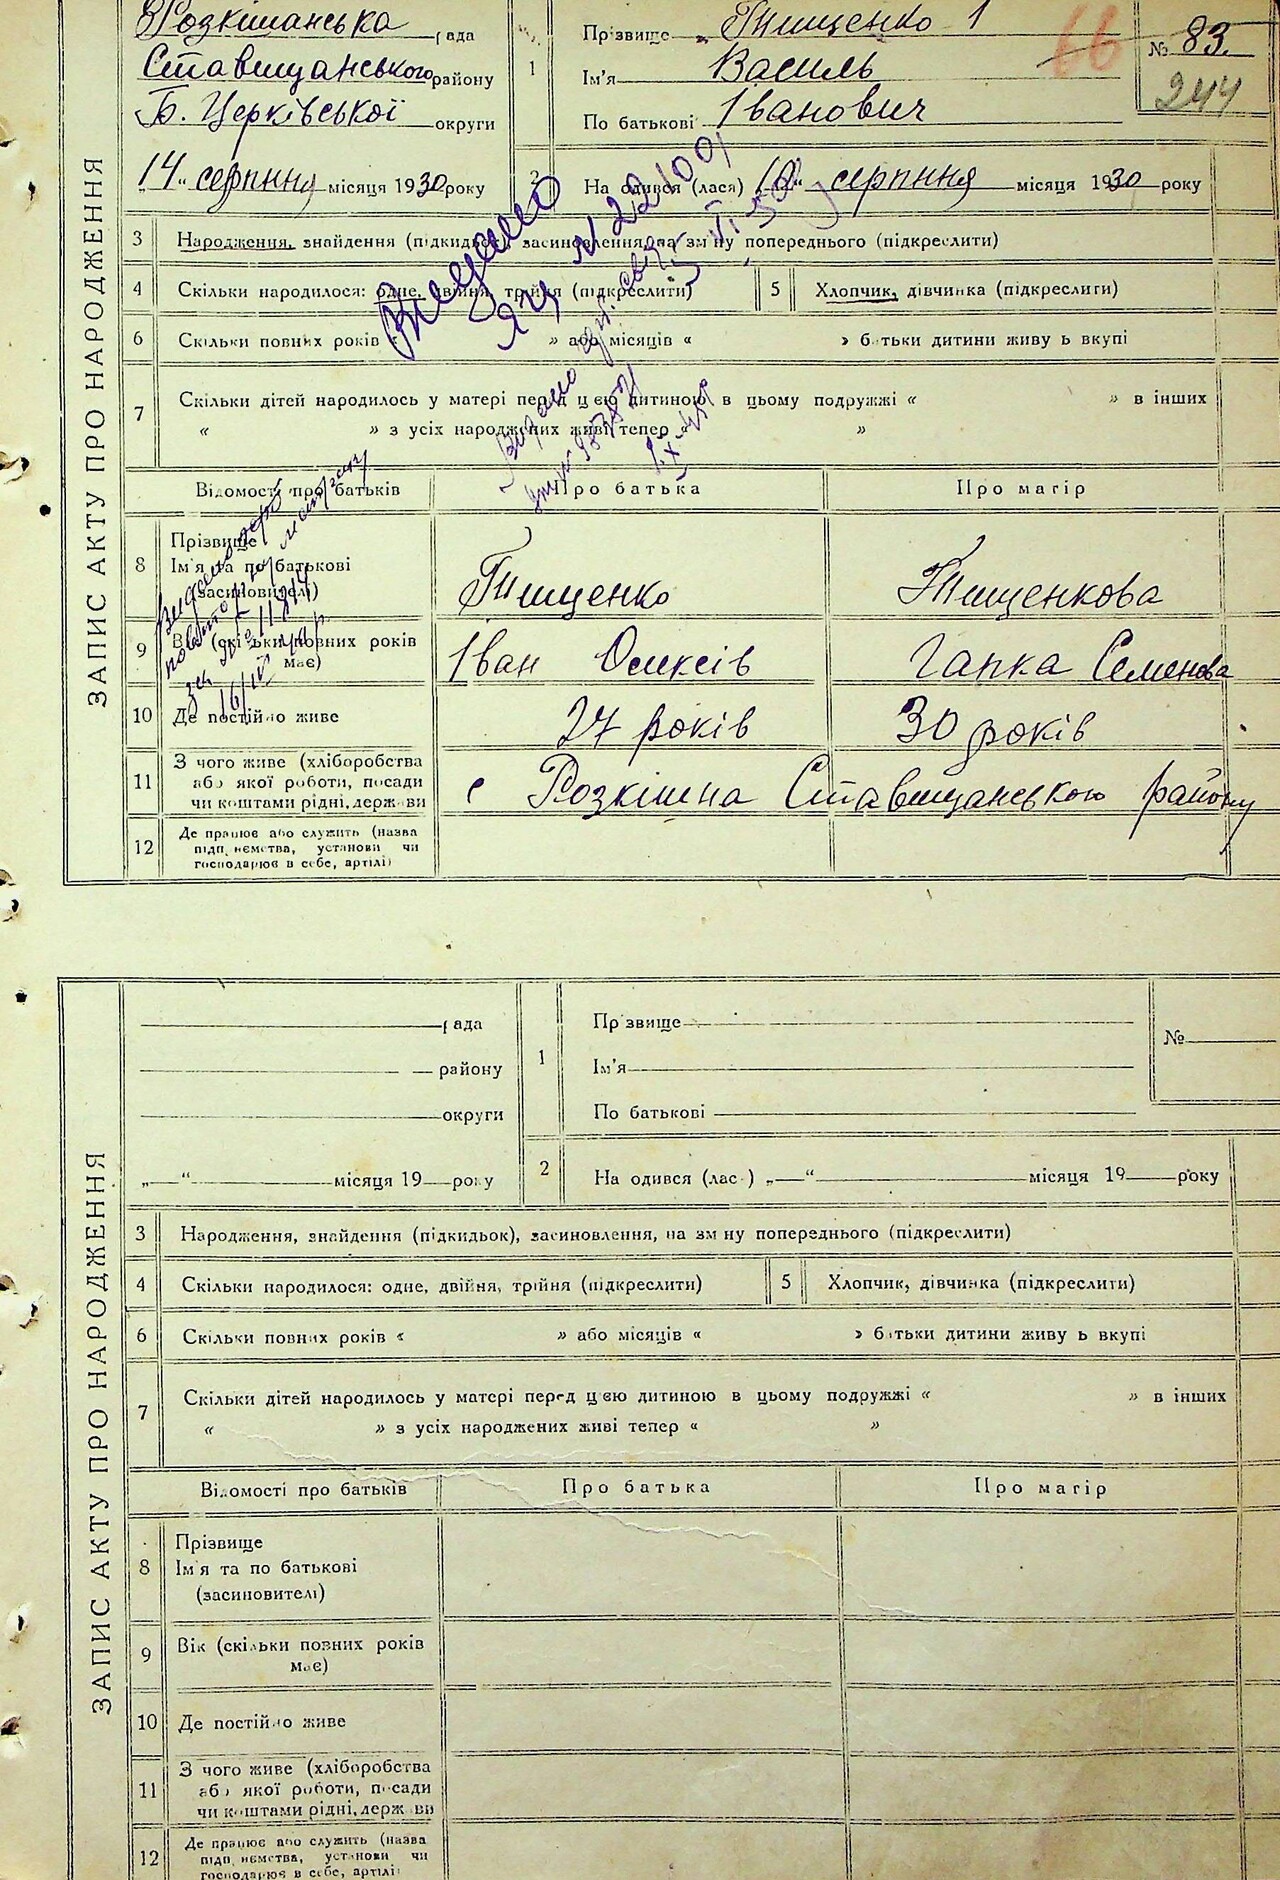 Розкішанська рада
Ставищанського району
Б. Церківської округи
„14“ серпня місяця 1930 року
1
Прізвище Тищенко
Ім'я Василь
По батькові Іванович
66
№ 83.
244
2
На одився (лася) „10“ серпня місяця 1930 року
ЗАПИС АКТУ ПРО НАРОДЖЕННЯ
3 Народження, знайдення (підкидьок), засиновлення, на зм ну попереднього (підкреслити)
4 Скільки народилося: одне, двійня, трійня (підкреслити)
5 Хлопчик, дівчинка (підкреслити)
6 Скільки повних років « » або місяців « » батьки дитини живу ь вкупі
7 Скільки дітей народилось у матері перед цією дитиною в цьому подружжі « » в інших
« » з усіх народжених живі тепер »
Видано
ЯЦ № 22100
VI-50
Видано
1.X-45р
Відомості про батьків Про батька Про матір
8 Прізвище
Ім'я та по батькові
(засиновителі)
Тищенко Тищенкова
9 Вік (скільки повних років
має)
Іван Олексів Гапка Семенова
10 Де постійно живе 27 років 30 років
11 З чого живе (хліборобства
або якої роботи, посади
чи коштами рідні, держ ви
с Розкішна Ставищанського району
12 Де працює або служить (назва
підп ємства, установи чи
господарює в себе, артілі)
рада
району
округи
„ “ місяця 19 року
1
Пр звище
Ім'я
По батькові
№
2
На одився (лас ) „ “ місяця 19 року
ЗАПИС АКТУ ПРО НАРОДЖЕННЯ
3 Народження, знайдення (підкидьок), засиновлення, на зм ну попереднього (підкреслити)
4 Скільки народилося: одне, двійня, трійня (підкреслити)
5 Хлопчик, дівчинка (підкреслити)
6 Скільки повних років « » або місяців « » батьки дитини живу ь вкупі
7 Скільки дітей народилось у матері перед цією дитиною в цьому подружжі « » в інших
« » з усіх народжених живі тепер « »
Відомості про батьків Про батька Про матір
8 Прізвище
Ім'я та по батькові
(засиновителі)
9 Вік (скільки повних років
має)
10 Де постійно живе
11 З чого живе (хліборобства
або якої роботи, посади
чи коштами рідні, держ ви
12 Де працює або служить (назва
підп ємства, установи чи
господарює в себе, артілі)